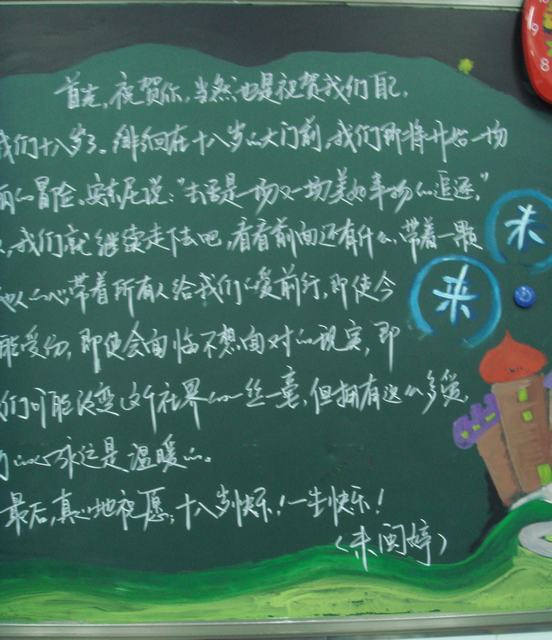 首先,祝贺你,当然也是祝贺我们自己,
我们十八岁了。徘徊在十八岁的大门前,我们即将开始一场
的冒险。安东尼说:“去是一场又一场美好事物的追逐,”
,我们就继续走下去吧,看看前面还有什么,带着一颗
他人的心,带着所有人给我们的爱前行,即使今
能受伤,即使会面临不想面对的现实,即
我们可能改变这个社界的一丝一毫,但拥有这么多爱,
们的心永远是温暖的。
最后,真心地祝愿:十八岁快乐!一生快乐!
(朱闽婷)
未
来